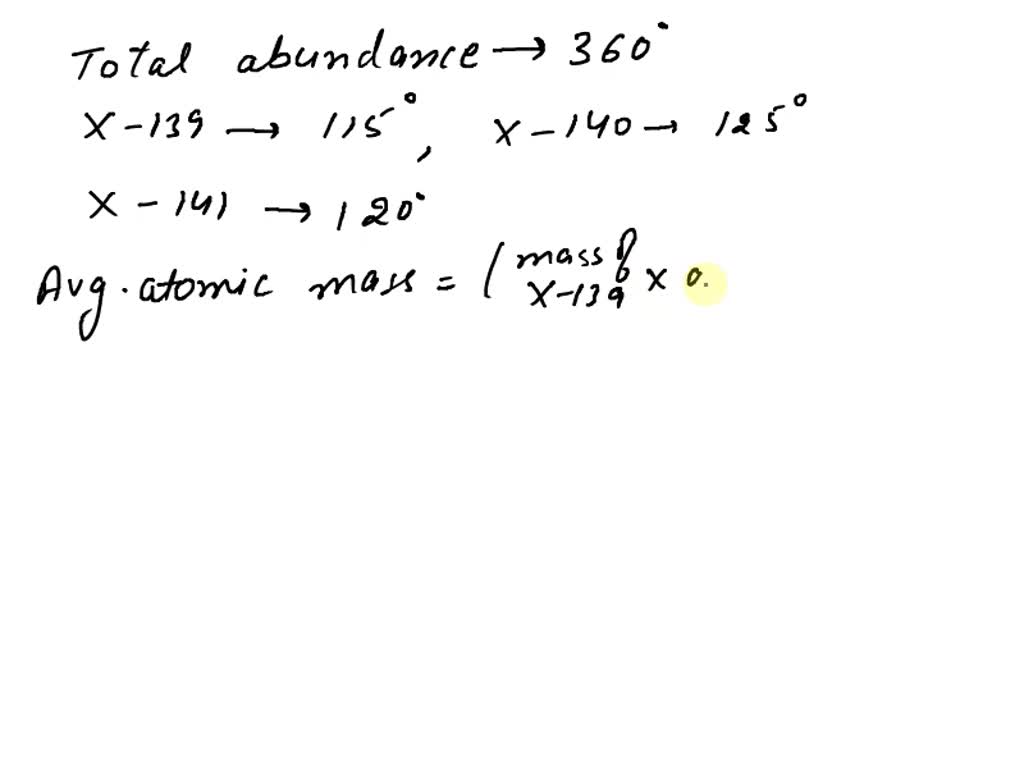 Total abundance → 360°
X-139 → 115°, X-140 → 125°
X-141 → 120°
Avg. atomic mass = ( mass of X-139 × a